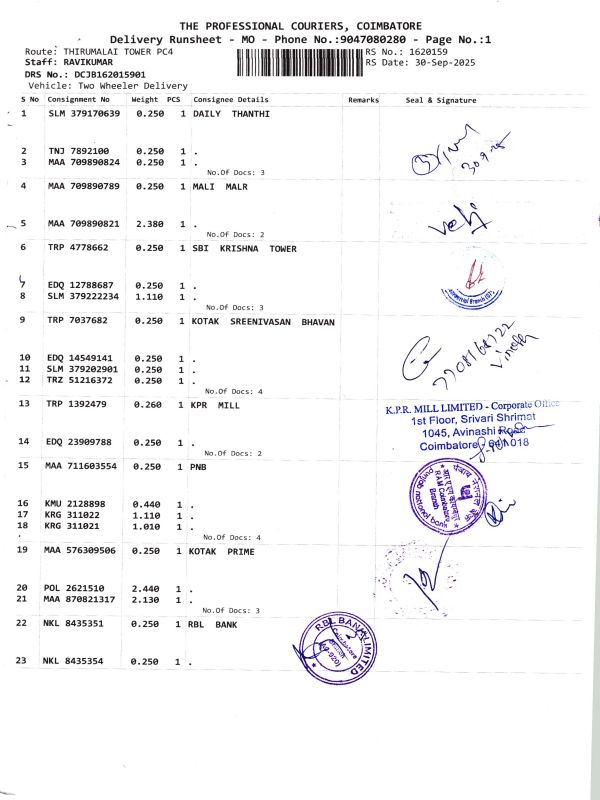 THE PROFESSIONAL COURIERS, COIMBATORE
Delivery Runsheet - MO - Phone No.:9047080280 - Page No.:1
Route: THIRUMALAI TOWER PC4 RS No.: 1620159
Staff: RAVIKUMAR RS Date: 30-Sep-2025
DRS No.: DCJB162015901
Vehicle: Two Wheeler Delivery
S No Consignment No Weight PCS Consignee Details Remarks Seal & Signature
1 SLM 379170639 0.250 1 DAILY THANTHI
2 TNJ 7892100 0.250 1 .
3 MAA 709890824 0.250 1 .
No.Of Docs: 3
4 MAA 709890789 0.250 1 MALI MALR
5 MAA 709890821 2.380 1 .
No.Of Docs: 2
6 TRP 4778662 0.250 1 SBI KRISHNA TOWER
7 EDQ 12788687 0.250 1 .
8 SLM 379222234 1.110 1 .
No.Of Docs: 3
9 TRP 7037682 0.250 1 KOTAK SREENIVASAN BHAVAN
7708168722
10 EDQ 14549141 0.250 1 .
11 SLM 379202901 0.250 1 .
12 TRZ 51216372 0.250 1 .
No.Of Docs: 4
13 TRP 1392479 0.260 1 KPR MILL
K.P.R. MILL LIMITED - Corporate Office
1st Floor, Srivari Shrimat
1045, Avinashi Road
Coimbatore - 641 018
14 EDQ 23909788 0.250 1 .
No.Of Docs: 2
15 MAA 711603554 0.250 1 PNB
16 KMU 2128898 0.440 1 .
17 KRG 311022 1.110 1 .
18 KRG 311021 1.010 1 .
No.Of Docs: 4
19 MAA 576309506 0.250 1 KOTAK PRIME
20 POL 2621510 2.440 1 .
21 MAA 870821317 2.130 1 .
No.Of Docs: 3
22 NKL 8435351 0.250 1 RBL BANK
RBL BANK LIMITED
Coimbatore
23 NKL 8435354 0.250 1 .